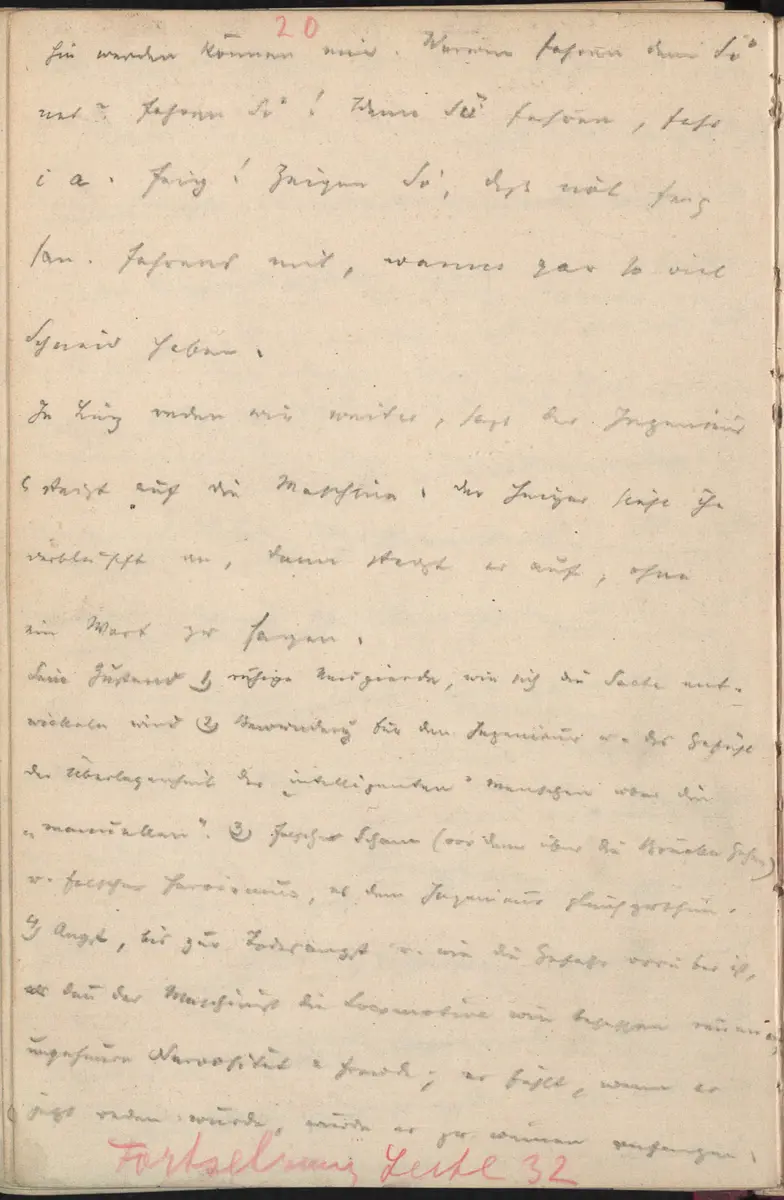 20
hin werden können mir. Warum fahren denn Sö
net? Fahren Sö! Wenn Sö fahren, fahr
i a. Feig! Zeigen Sö, daß nöt feig
san. Fahrens mit, wanns gar so viel
Schneid haben.
In Linz reden wir weiter, sagt der Ingenieur
& steigt auf die Maschine. Der Heizer sieht ihn
verblüfft an, dann steigt er auf, ohne
ein Wort zu sagen.
Sein Zustand 1) ruhige Neugierde, wie sich die Sache ent-
wickeln wird 2) Bewunderg für den Ingenieur u. das Gefühl
der Überlegenheit der „intelligenten" Menschen über die
„manuellen". 3) falsche Scham (vor dem über die Brücke Gehen)
u. falscher Heroismus, es dem Ingenieur gleichzuthun.
4) Angst, bis zur Todesangst u. wie die Gefahr vorüber ist,
der Maschinist die Locomotive wie besessen
ungeheure Nervosität & Freude; er fühlt, wenn er
jetzt reden würde, würde er zu weinen anfangen.
Fortsetzung Seite 32